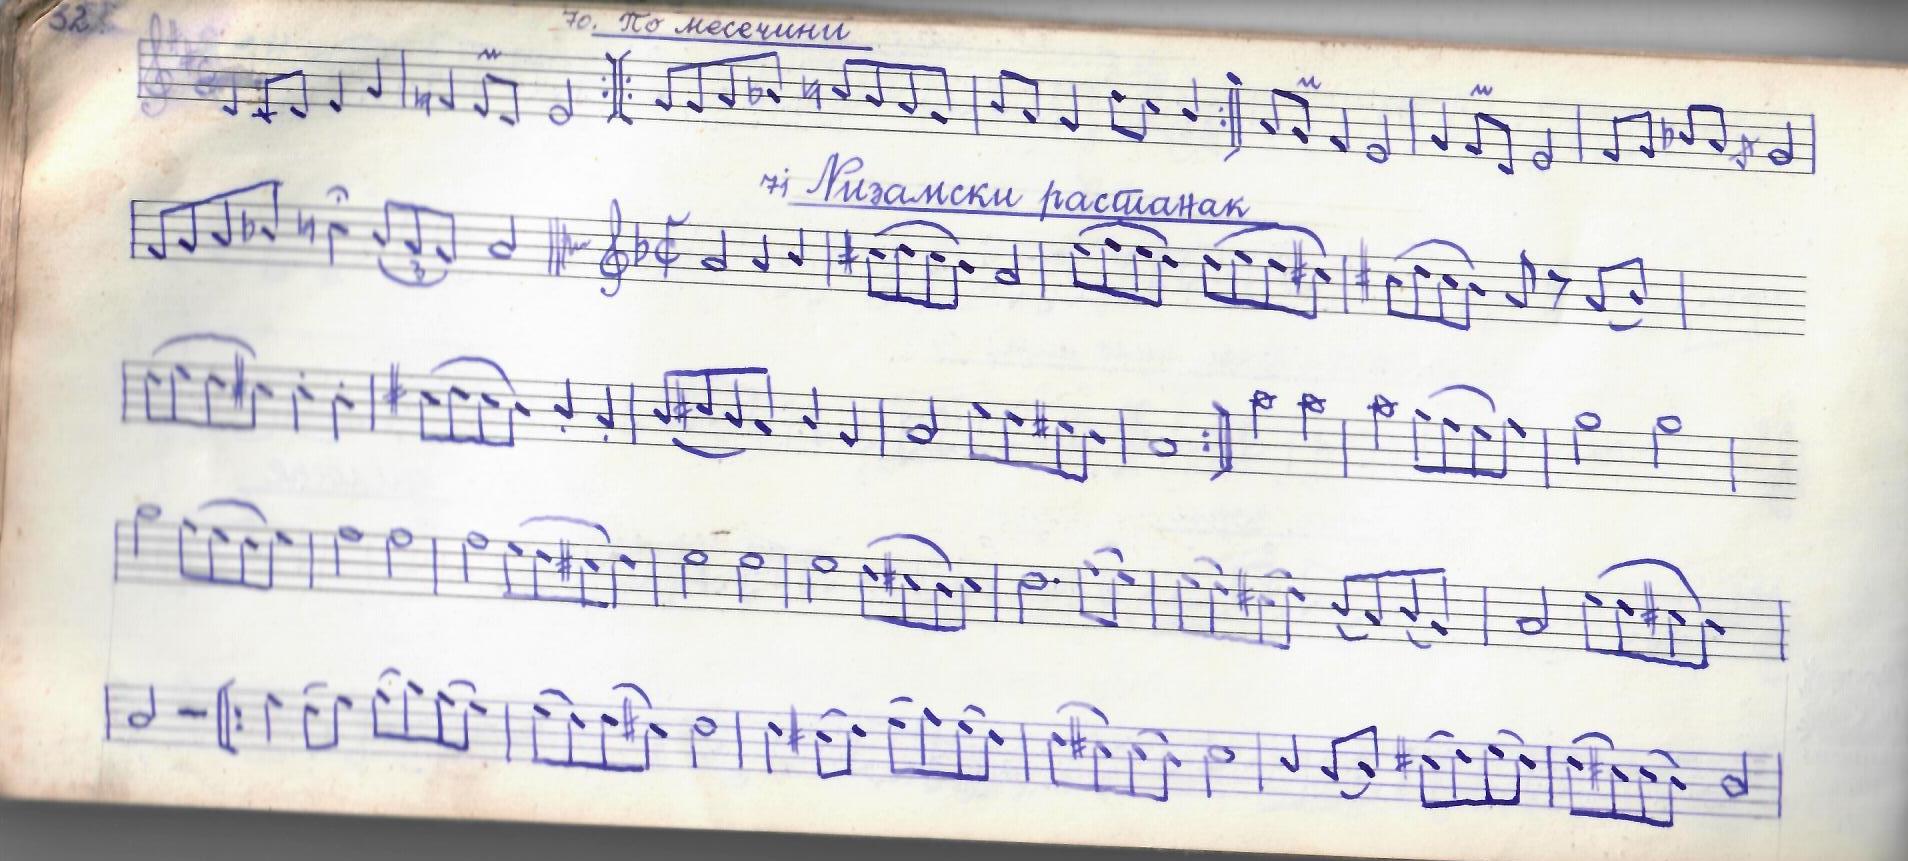 32
70. По месечини
71 Низамски растанак
3